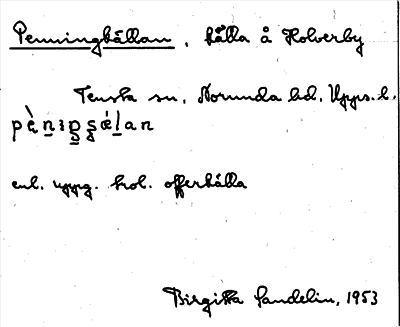 Penningkällan, källa å Holverby
Tensta sn, Norunda hd. Upps. l.
pèniŋşǽlan
enl. uppg. trol. offerkälla
Birgitta Sandelin, 1953